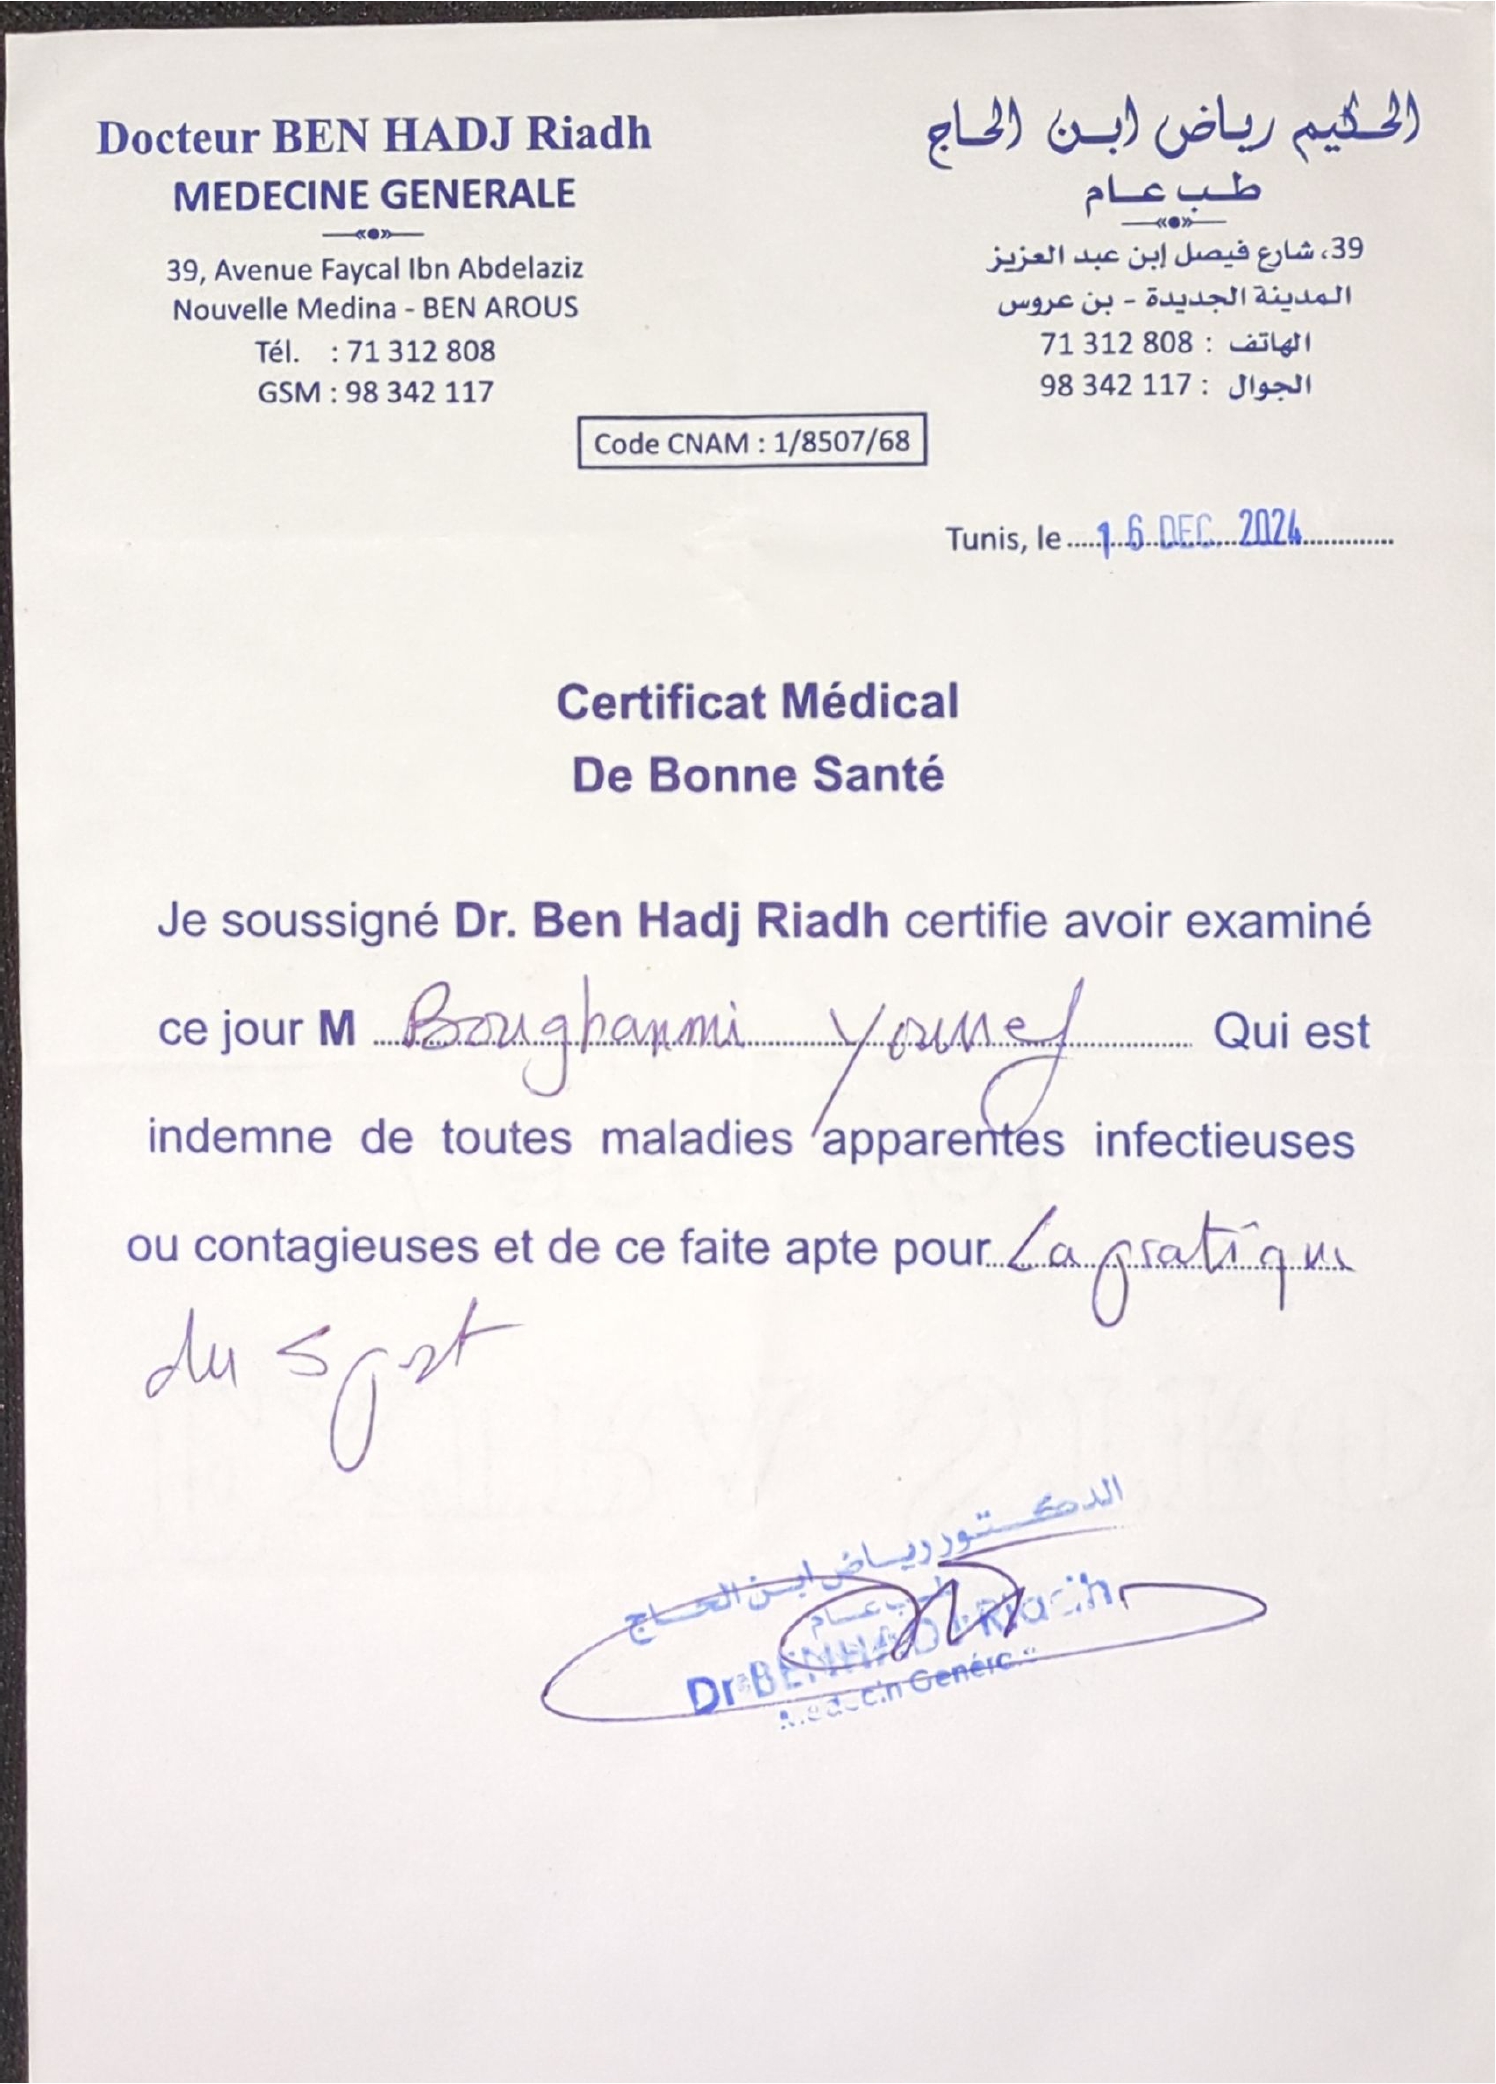 Docteur BEN HADJ Riadh
MEDECINE GENERALE
39, Avenue Faycal Ibn Abdelaziz
Nouvelle Medina - BEN AROUS
Tél. : 71 312 808
GSM : 98 342 117
الحكيم رياض ابن الحاج
طب عام
39، شارع فيصل إبن عبد العزيز
المدينة الجديدة - بن عروس
الهاتف : 71 312 808
الجوال : 98 342 117
Code CNAM : 1/8507/68
Tunis, le 16 DEC. 2024
Certificat Médical
De Bonne Santé
Je soussigné Dr. Ben Hadj Riadh certifie avoir examiné
ce jour M Boughanmi Youssef Qui est
indemne de toutes maladies apparentes infectieuses
ou contagieuses et de ce faite apte pour La pratique
du sport
الدكتور رياض ابن الحاج
طب عام
Dr BEN HADJ Riadh
Médecin Générale